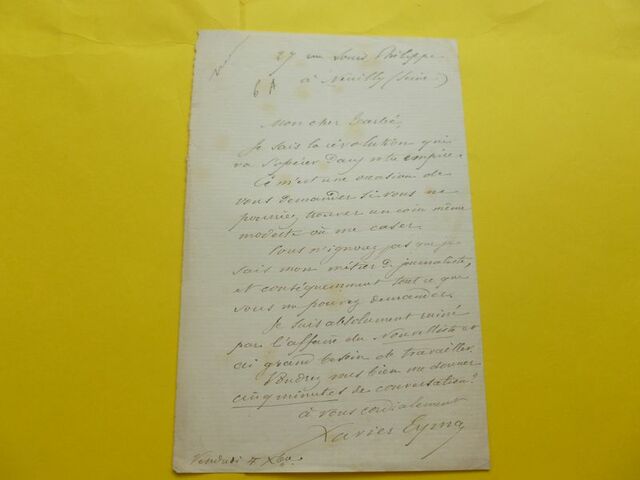 27 rue Louis Philippe
à Neuilly (Seine)
6 A
Mon cher
Je sais la révolution qui
va s'opérer dans votre empire.
Ce m'est une occasion de
vous demander si vous ne
pourriez trouver un coin même
modeste où me caser.
Vous n'ignorez pas que je
sais mon métier de journaliste,
et conséquemment tout ce que
vous me pouvez demander.
Je suis absolument ruiné
par l'affaire du Nouvelliste et
ai grand besoin de travailler.
Voudrez vous bien me donner
cinq minutes de conversation?
à vous cordialement
Xavier Eyma
Vendredi 4 Xbre